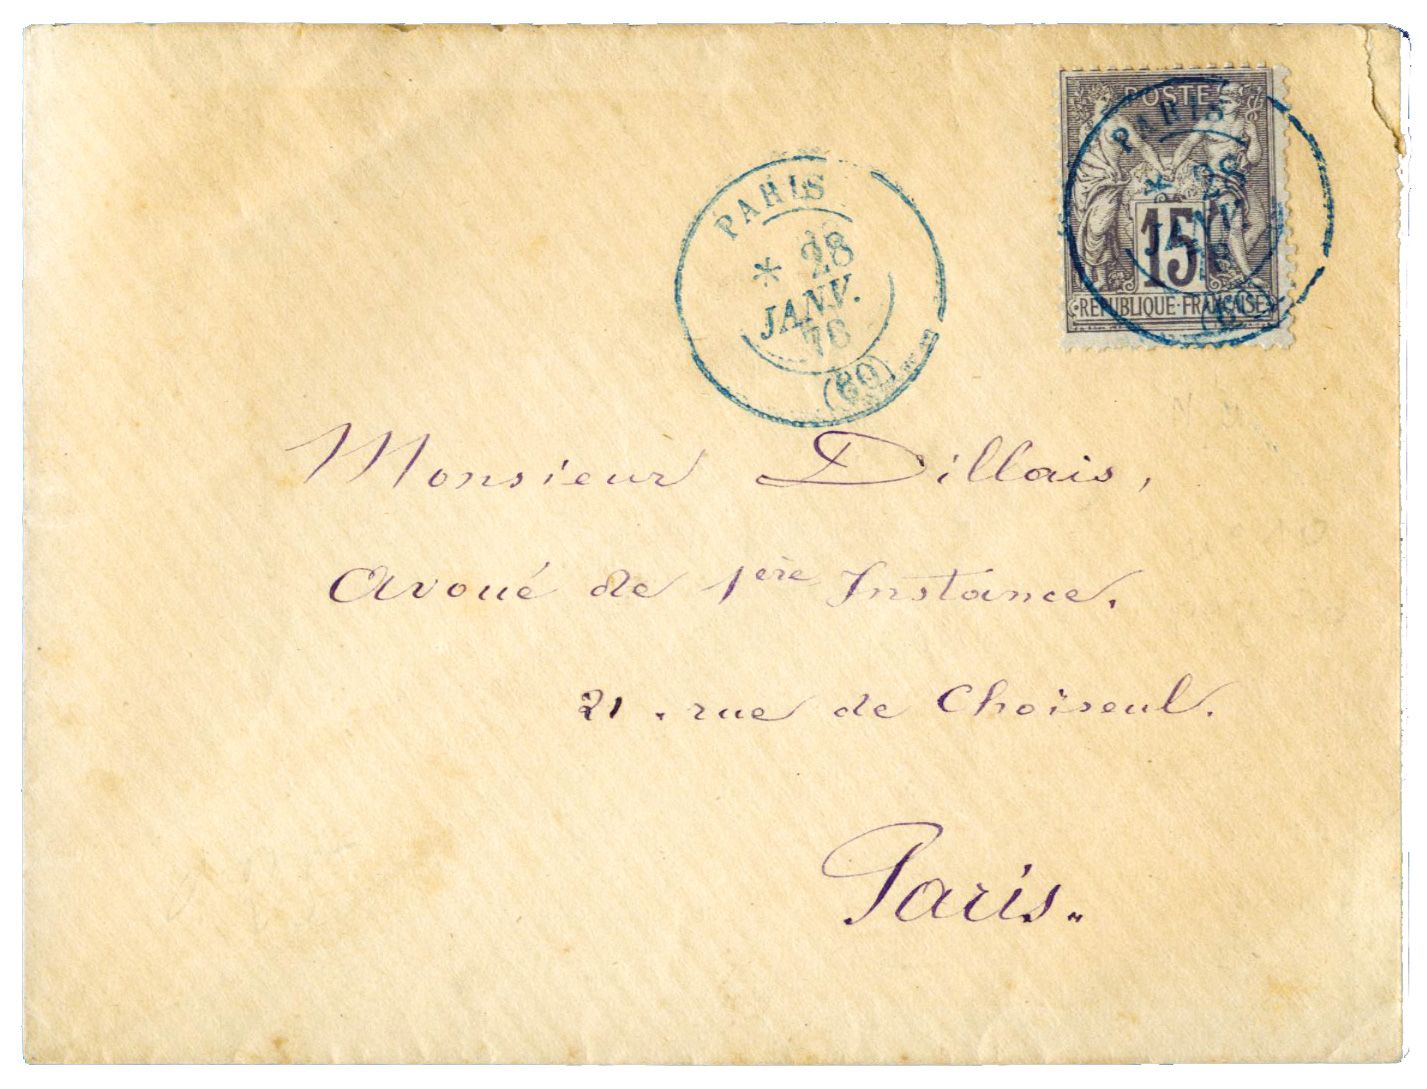 POSTE
15
RÉPUBLIQUE·FRANÇAISE
PARIS
28
JANV.
78
(60)
PARIS
* 28
JANV.
78
(60)
Monsieur Dillais,
Avoué de 1ère Instance.
21. rue de Choiseul.
Paris.